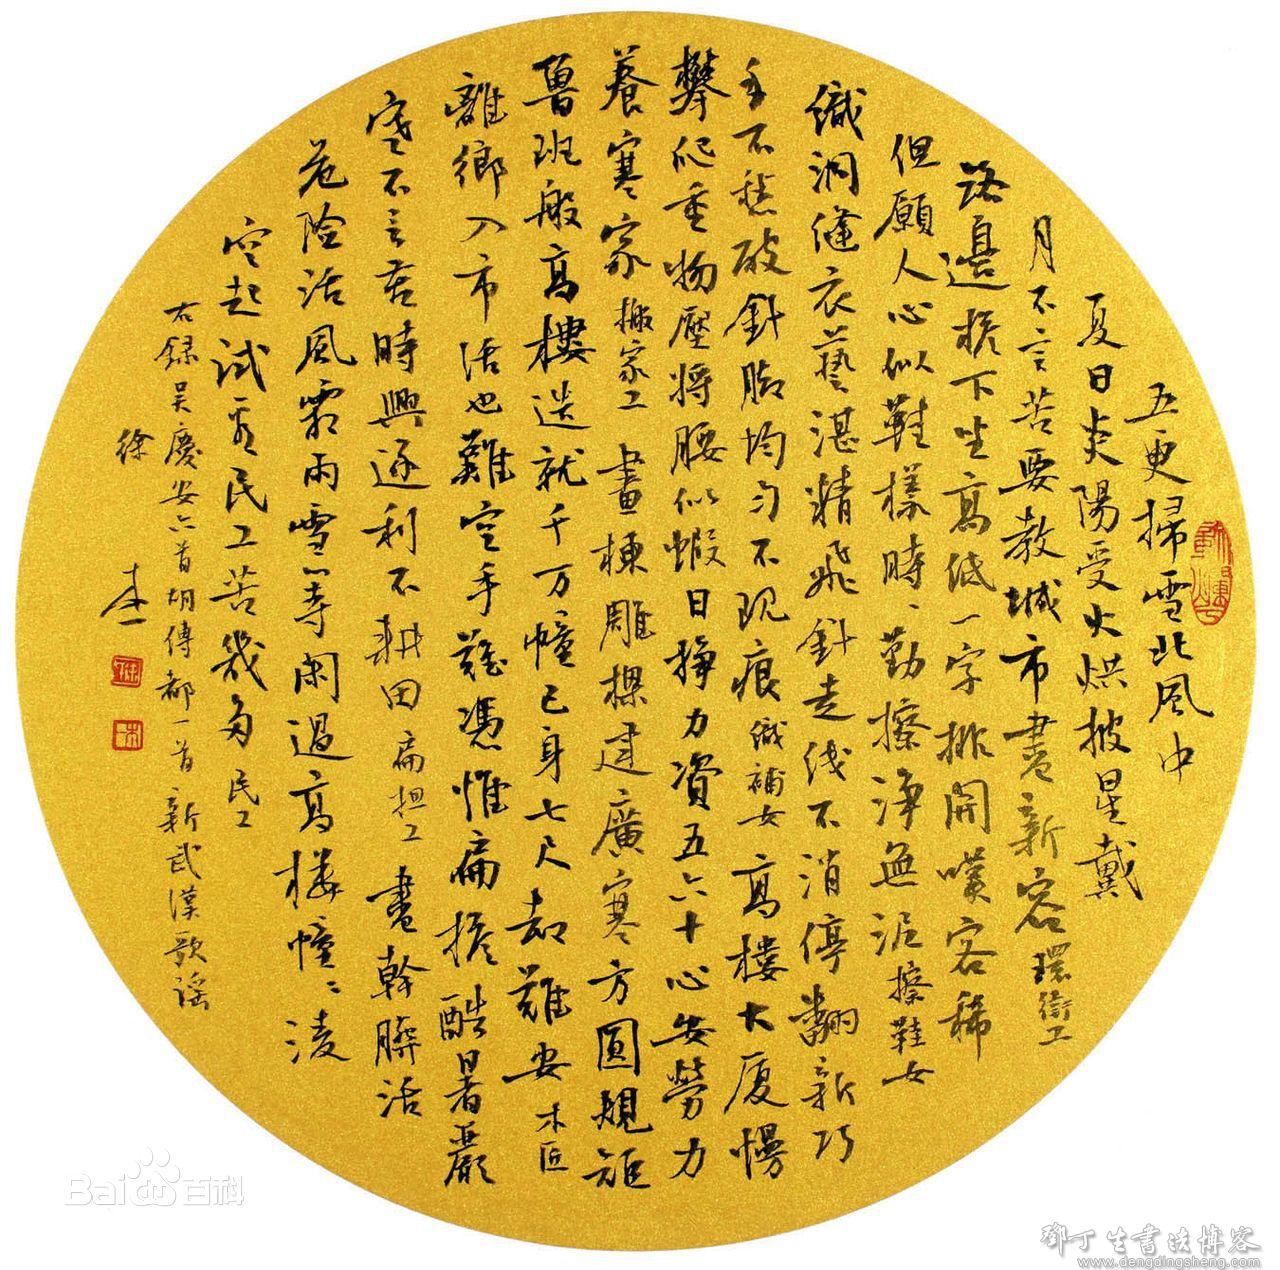 五更掃雪北風中
夏日炎陽受火烘披星戴
月不言苦要教城市畫新容環衛工
路邊檐下坐高低一字排開嘆客稀
但願人心似鞋樣時〻勤擦淨無泥擦鞋女
織洞縫衣藝湛精飛針走线不消停翻新巧
手不愁破針腳均匀不現痕織補女高樓大厦慢
攀爬重物壓將腰似蝦日掙力資五六十心安勞力
養寒家搬家工畫棟雕樑建廣寒方圓規矩
魯班般高樓造就千万幢己身七尺却難安木匠
離鄉入市活也難空手難憑惟扁擔酷暑嚴
寒不言苦時興逐利不耕田扁担工畫幹髒活
危險活風霜雨雪等閑過高樓幢〻凌
空起試看民工苦幾多民工
右録吴慶安六首胡傳都一首新武漢歌謡
徐
Bai 百科
鄧丁生書法博客
www.dengdingsheng.com